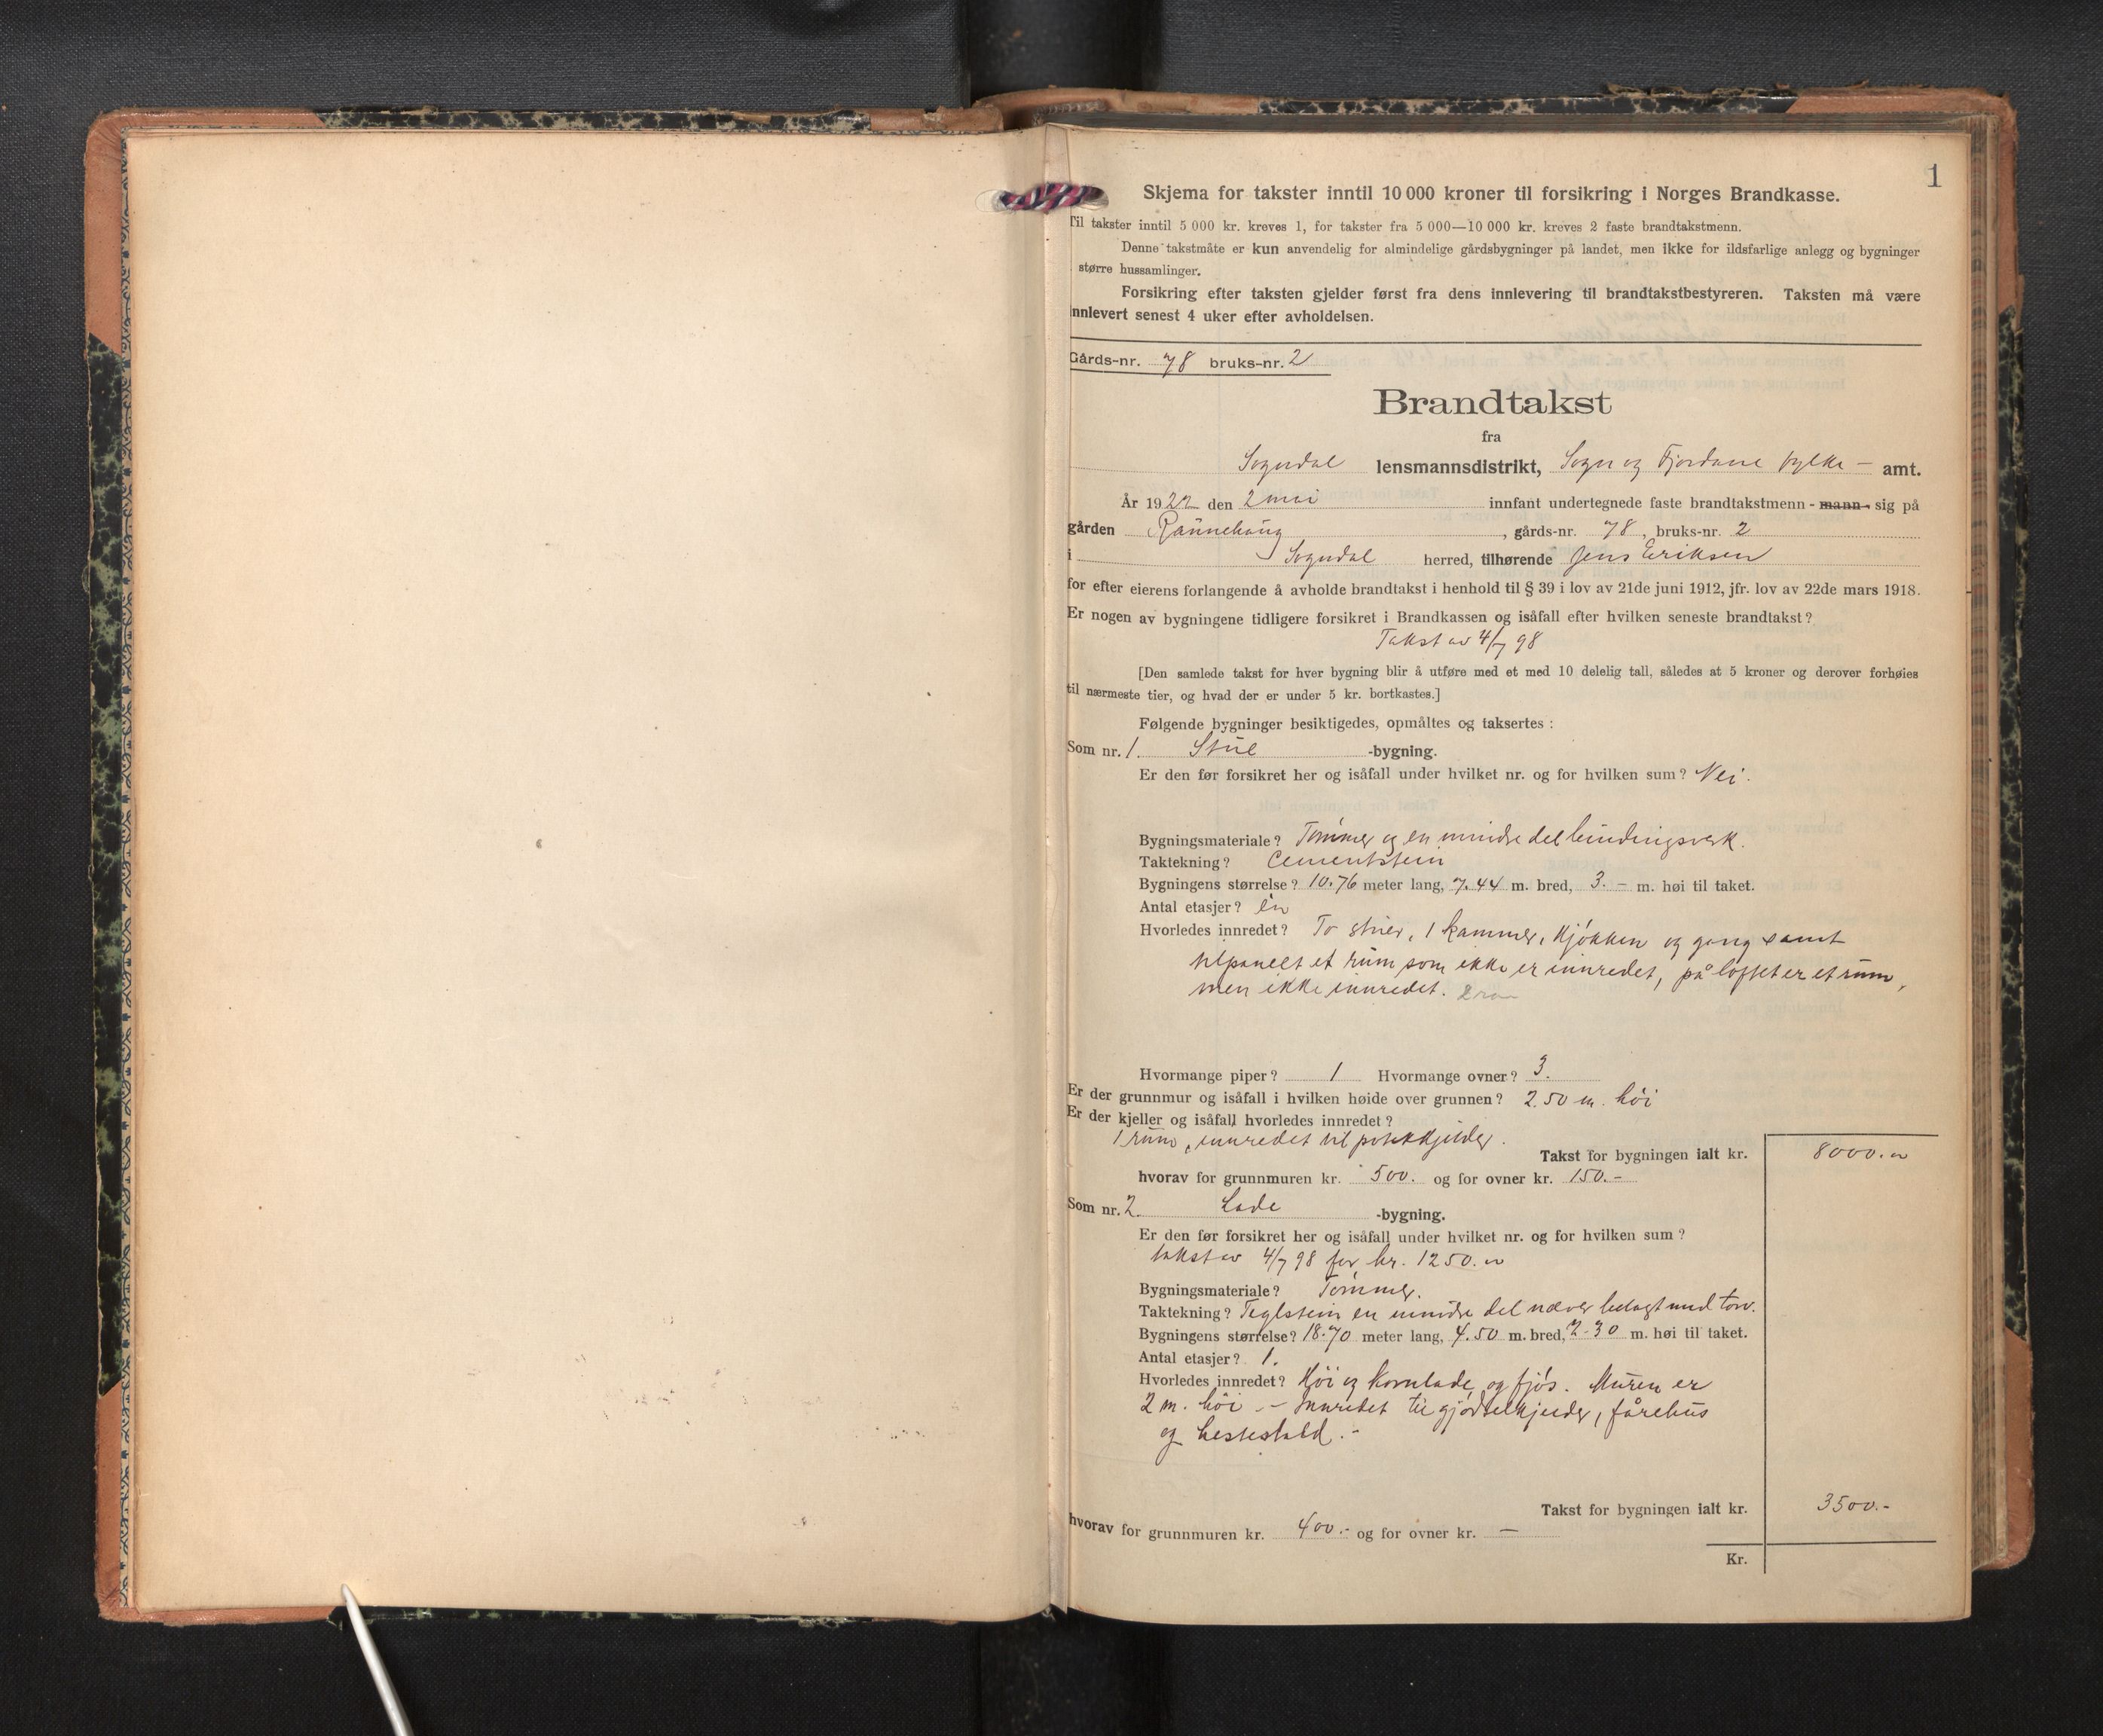 1
Skjema for takster inntil 10 000 kroner til forsikring i Norges Brandkasse.
Til takster inntil 5 000 kr. kreves 1, for takster fra 5 000—10 000 kr. kreves 2 faste brandtakstmenn.
Denne takstmåte er kun anvendelig for almindelige gårdsbygninger på landet, men ikke for ildsfarlige anlegg og bygninger
større hussamlinger.
Forsikring efter taksten gjelder først fra dens innlevering til brandtakstbestyreren. Taksten må være
innlevert senest 4 uker efter avholdelsen.
Gårds-nr. 78 bruks-nr. 2
Brandtakst
fra
Sogndal lensmannsdistrikt, Sogn og Fjordane fylke – amt.
År 1922 den 2 mai innfant undertegnede faste brandtakstmenn - mann- sig på
gården Rannehaug, gårds-nr. 78, bruks-nr. 2
i Sogndal herred, tilhørende Jens Eriksen
for efter eierens forlangende å avholde brandtakst i henhold til § 39 i lov av 21de juni 1912, jfr. lov av 22de mars 1918.
Er nogen av bygningene tidligere forsikret i Brandkassen og isåfall efter hvilken seneste brandtakst?
Takst av 4/7 98
[Den samlede takst for hver bygning blir å utføre med et med 10 delelig tall, således at 5 kroner og derover forhøies
til nærmeste tier, og hvad der er under 5 kr. bortkastes.]
Følgende bygninger besiktigedes, opmåltes og taksertes :
Som nr. 1. Stue -bygning.
Er den før forsikret her og isåfall under hvilket nr. og for hvilken sum? Nei.
Bygningsmateriale? Tømmer og en mindre del bindingsverk.
Taktekning? Cementstein
Bygningens størrelse? 10.76 meter lang, 7.44 m. bred, 3. – m. høi til taket.
Antal etasjer? én
Hvorledes innredet? To stuer, 1 kammer, kjøkken og gang samt
tilpanelt et rum som ikke er innredet, på loftet er et rum,
men ikke innredet.
Hvormange piper? 1 Hvormange ovner? 3.
Er der grunnmur og isåfall i hvilken høide over grunnen? 2.50 m. høi
Er der kjeller og isåfall hvorledes innredet?
1 rum, innredet til potetkjelder.
Takst for bygningen ialt kr. 8000.
hvorav for grunnmuren kr. 500. og for ovner kr. 150.-
Som nr. 2. Lade -bygning.
Er den før forsikret her og isåfall under hvilket nr. og for hvilken sum?
takst av 4/7 98 for kr. 1250.
Bygningsmateriale? Tømmer.
Taktekning? Teglstein en mindre del næver belagt med torv.
Bygningens størrelse? 18.70 meter lang, 4.50 m. bred, 2.30 m. høi til taket.
Antal etasjer? 1.
Hvorledes innredet? Høi og kornlade og fjøs. Muren er
2 m. høi – innredet til gjødselkjelder, fårehus
og hestestald.-
Takst for bygningen ialt kr. 3500.-
hvorav for grunnmuren kr. 400.- og for ovner kr. —
Kr.